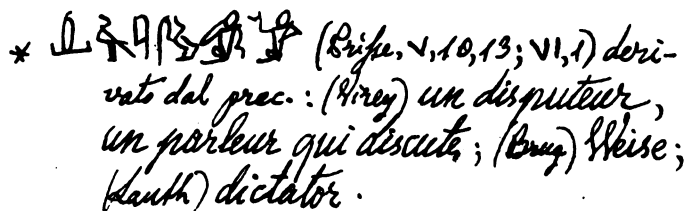 * (Prisse, V, 10, 13; VI, 1) deri-
vato dal prec. : (Virey) un disputeur,
un parleur qui discute; (Brug) Weise;
(Lauth) dictator.